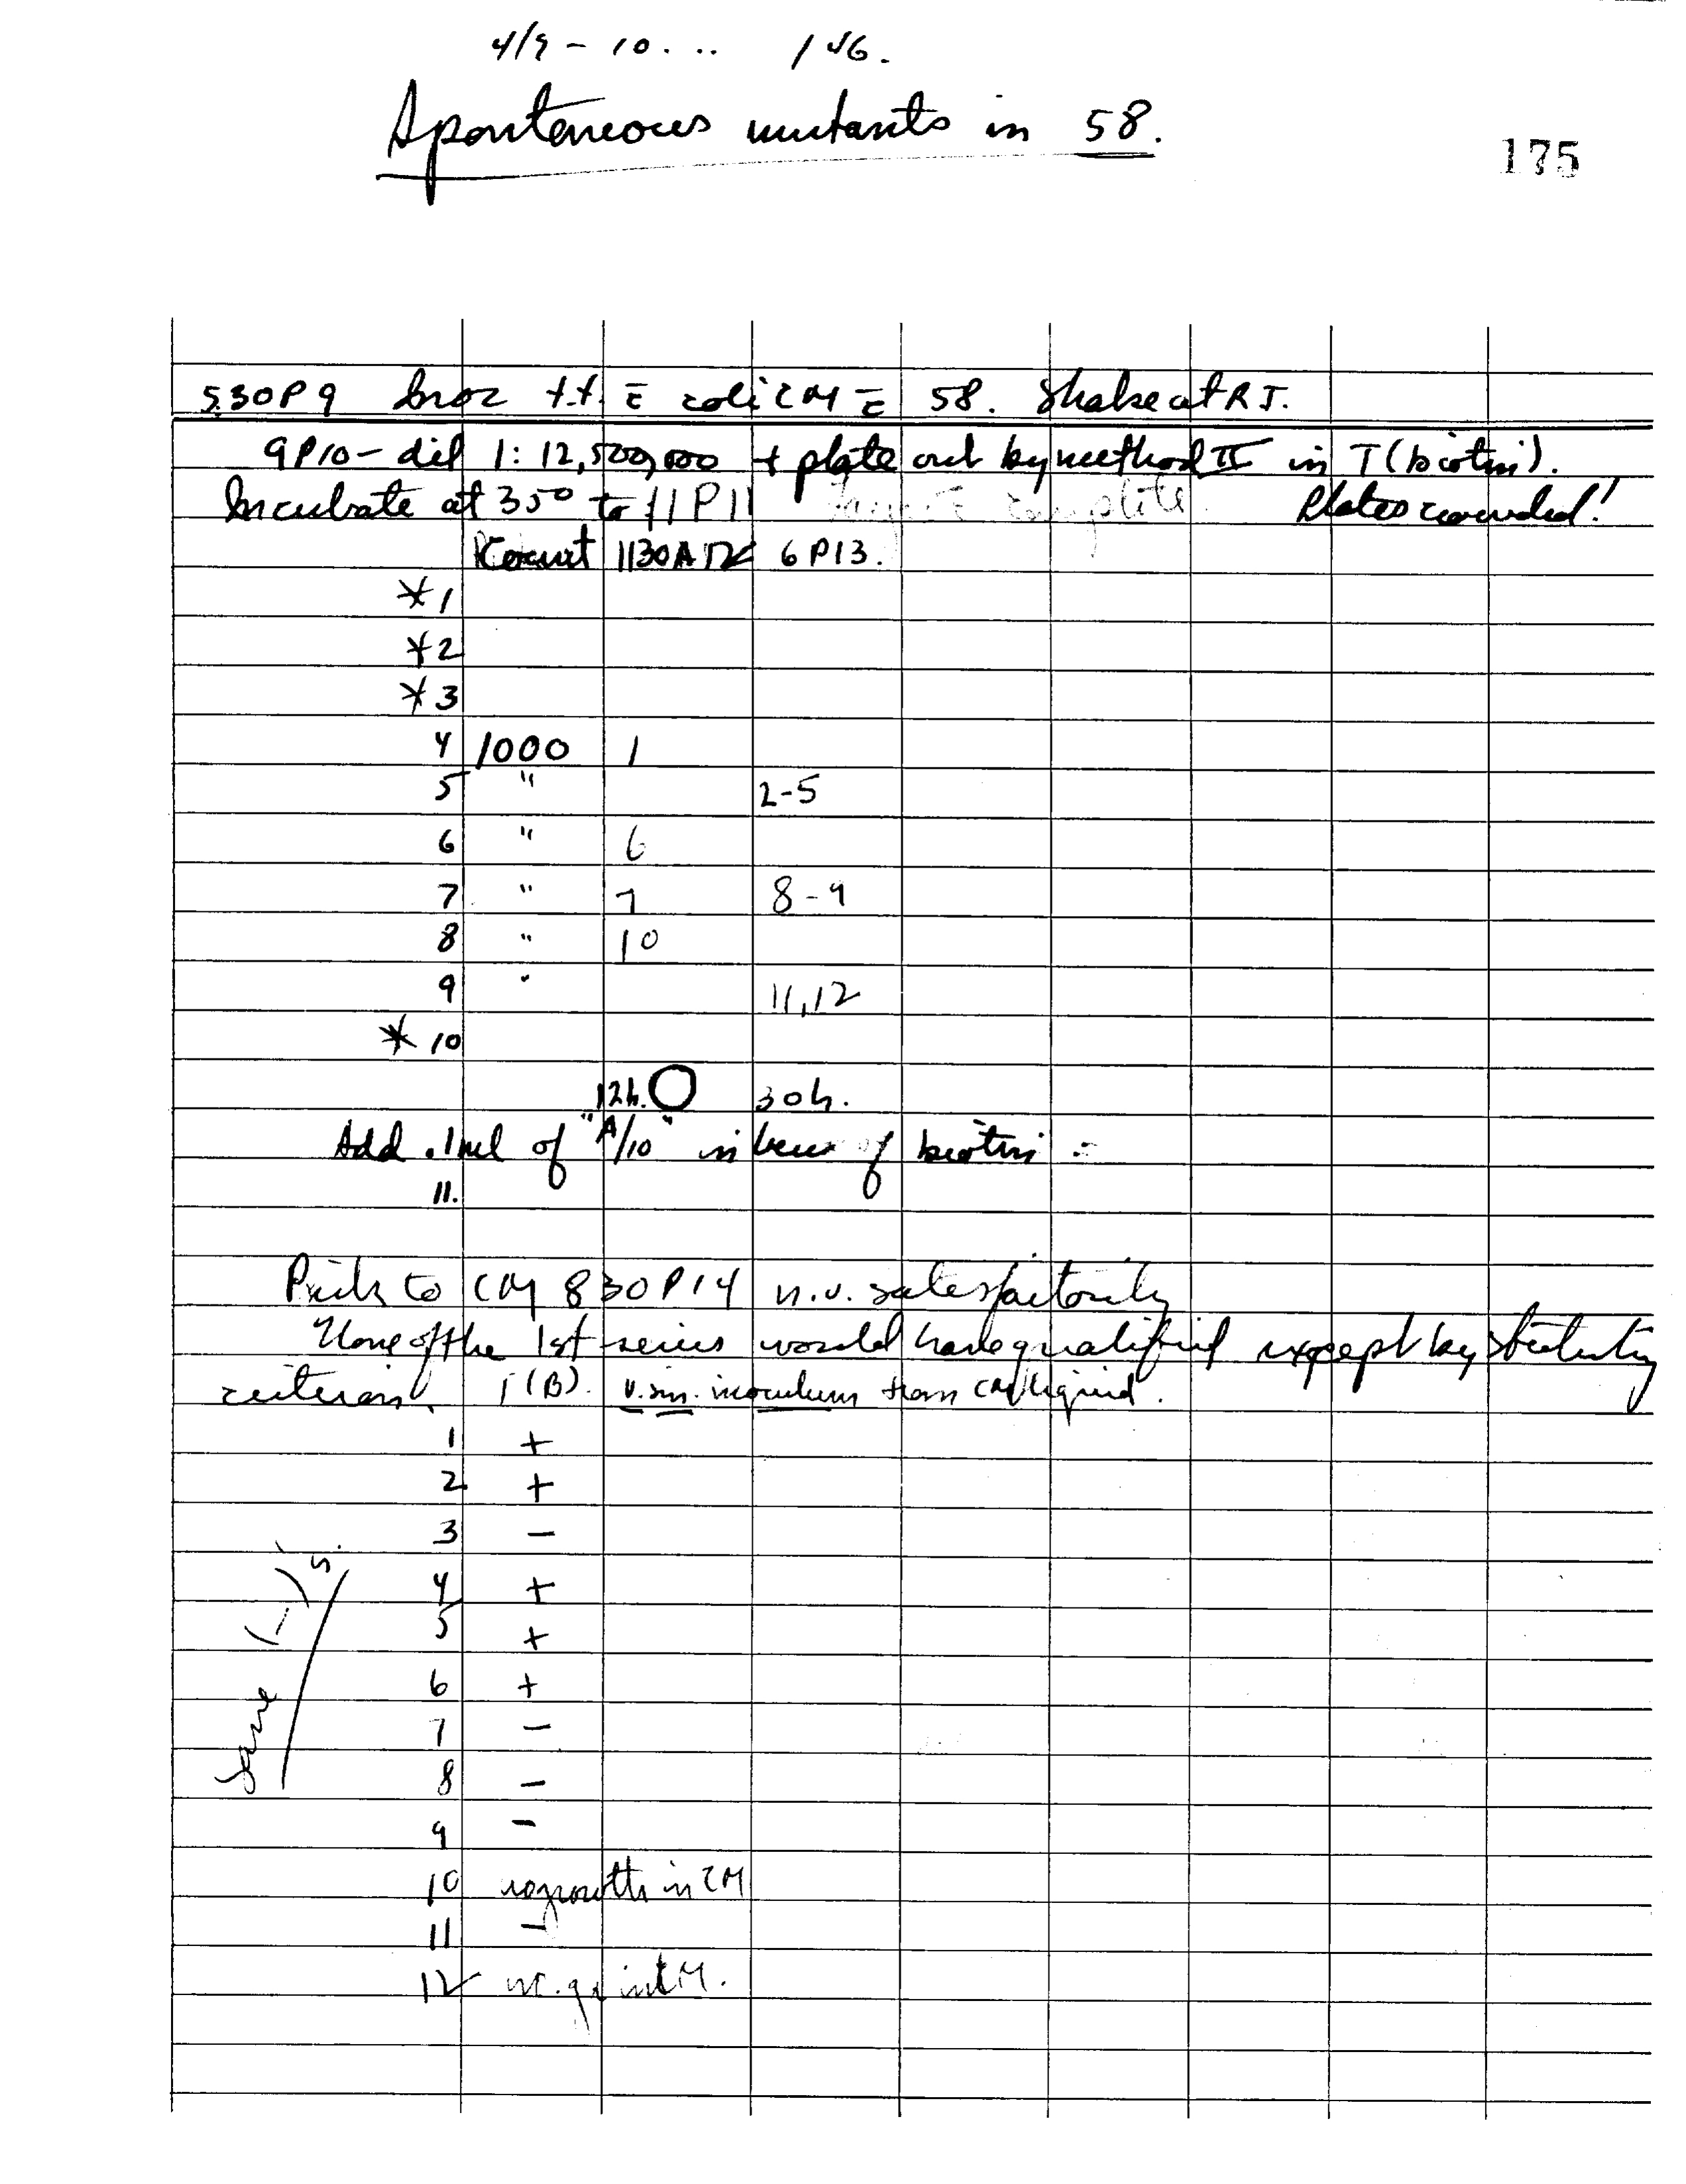 4/9 - 10... 146.
Spontaneous mutants in 58.
175
530P9 Inoc t.t. c̄ coli CM c̄ 58. Shake at RT.
9P10 - dil 1:12,500,000 + plate out by method II in T(biotin).
Incubate at 35° to 11P11 complete. Plates crowded!
Count 1130A12 6P13.
*1
*2
*3
4 1000 1
5 " 2-5
6 " 6
7 " 7 8-9
8 " 10
9 " 11,12
*10
12h. O 30h.
Add .1ml of "A/10" in lieu of biotin :-
11.
Picks to CM 830P14 n.v. satisfactorily
None of the 1st series would have qualified except by
criterion. T(B). v.sm. inoculum from CM liquid.
1 +
2 +
3 -
4 +
5 +
6 +
7 -
8 -
9 -
10 no growth in CM
11 -
12 no. gr in CM.
Save (-)'s.